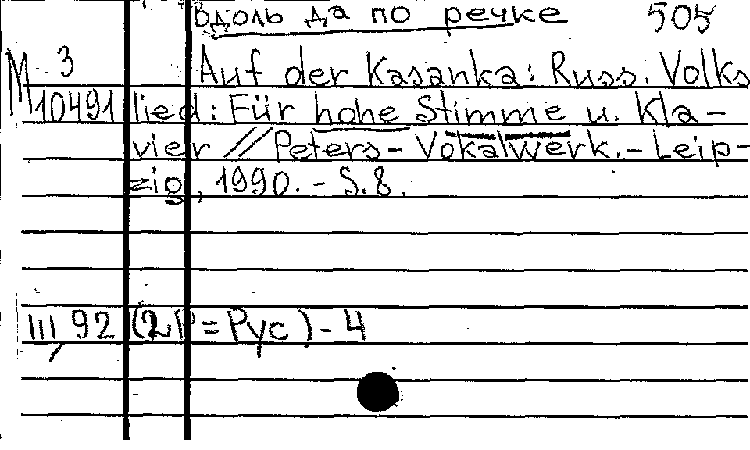 Вдоль да по речке 505
М 3 Auf der Kasanka: Russ. Volks
10491 lied: Für hohe Stimme u. Kla-
vier // Peters-Vokalwerk.-Leip-
zig, 1990.-S.8.
III, 92 (2Р=Рус)-4